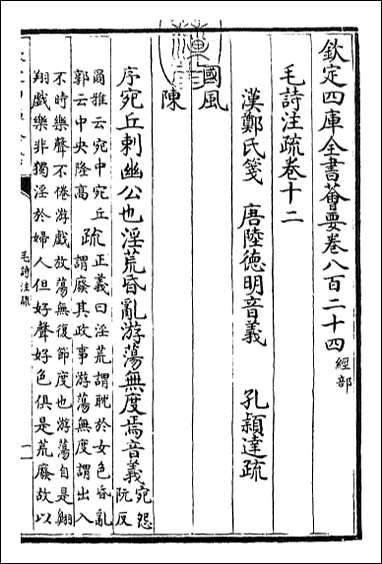 欽定四庫全書薈要卷八百二十四 經部
毛詩注疏卷十二
漢鄭氏箋 唐陸德明音義 孔穎達疏
國風
陳
序宛丘刺幽公也淫荒昏亂游蕩無度焉音義宛怨阮反
爾雅云宛中宛丘
郭云中央隆高
疏正義曰淫荒謂耽於女色昏亂
謂廢其政事游蕩無度謂出入
不時樂聲不倦游戲放蕩無復節度也游蕩自是翺
翔戲樂非獨淫於婦人但好聲好色俱是荒廢故以
毛詩注疏
一